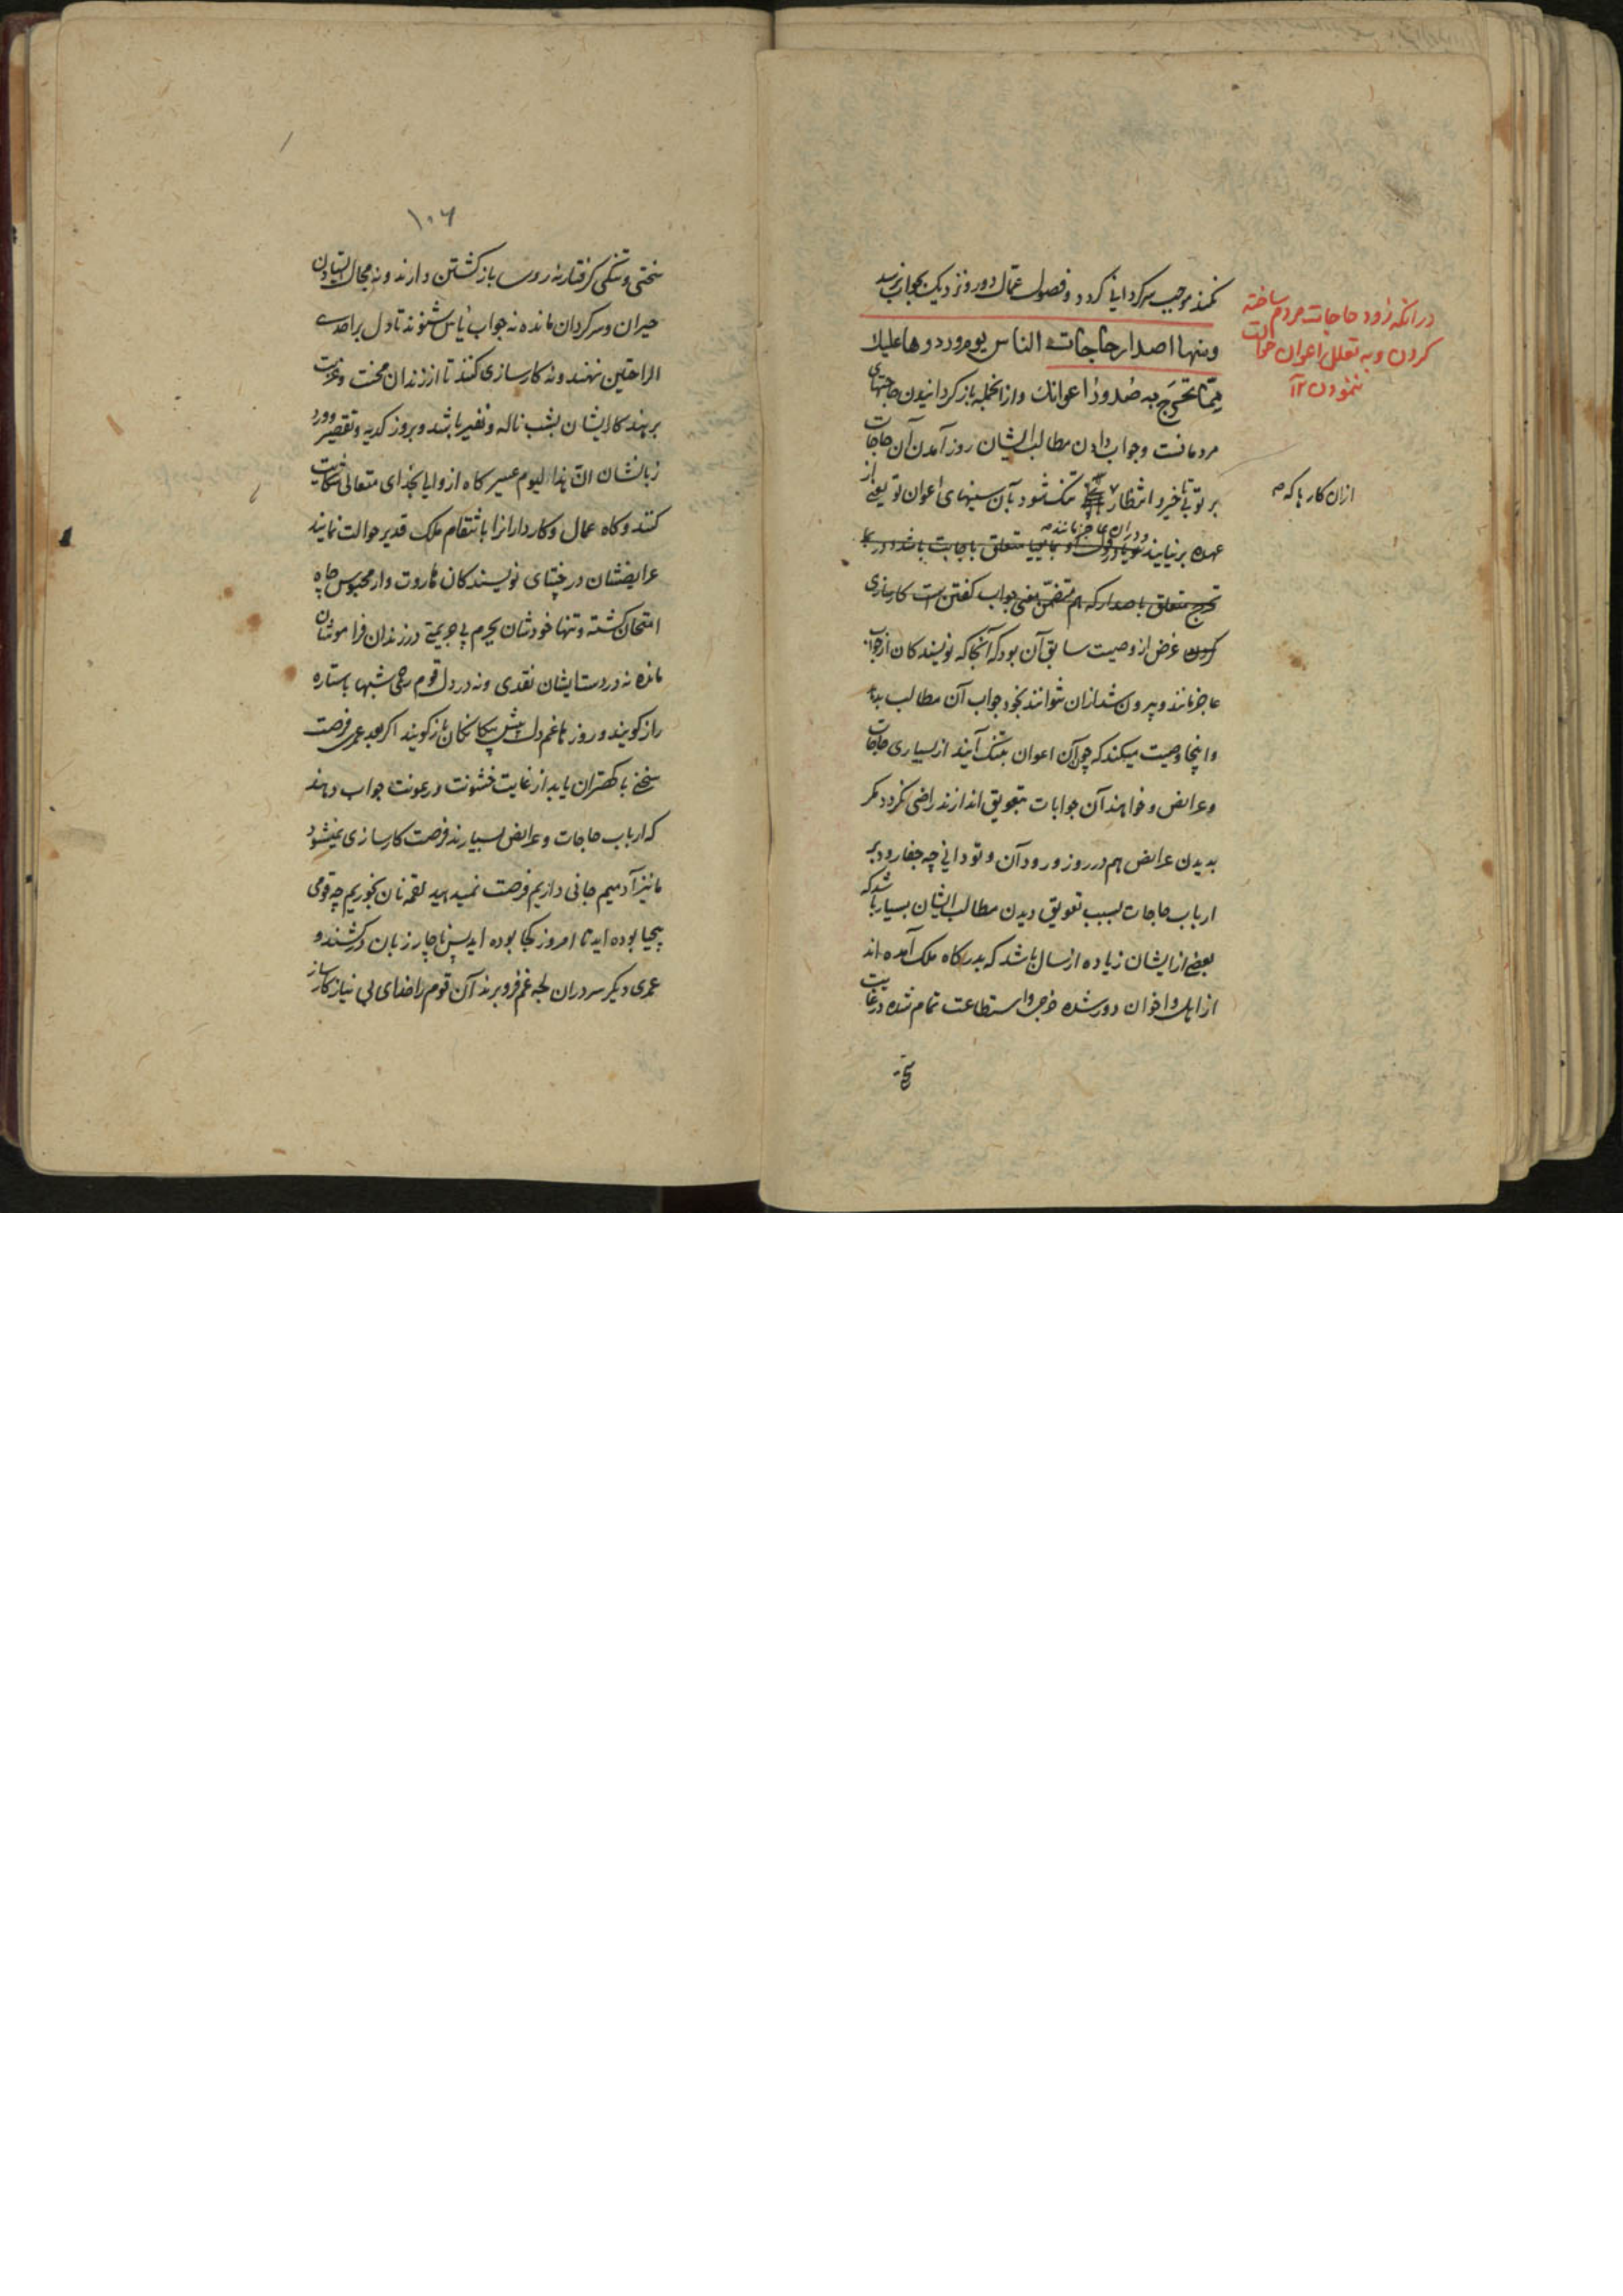 نکند موجب سرکردانی کردد و فصول عمال دور و نزدیک بجواب نرسد
ومنها اصدار حاجات الناس یوم ورودها علیك
مما تحرج به صدور اعوانك وازانجمله باز کردانیدن حاجتهای
مردمانست و جواب دادن مطالب ایشان روز آمدن آن حاجات
بر تو بتاخیر و انتظار تنک شود بآن سینهای اعوان تو یعنی از
عهده برنیایند و دران عاجز مانند
تحرج متعلق باصدار که هم متضمن معنی جواب کفتن است کارسازی
کردن غرض از وصیت سابق آن بود که آنجا که نویسندکان از جواب
عاجز مانند و بیرون شد ازان نتوانند بخود جواب آن مطالب بده
و اینجا وصیت میکند که چون آن اعوان بتنک آیند از بسیاری حاجات
و عرایض و خواهند آن جوابات بتعویق اندازند راضی نکردد مکر
بدیدن عرایض هم در روز ورود آن و تو دانی چه جفا رود بر
ارباب حاجات بسبب تعویق دیدن مطالب ایشان بسیار باشد که
بعضی از ایشان زیاده از سال باشد که بدرکاه ملک آمده اند
از اهل و اخوان دور شده خرجی و استطاعت تمام شده در غایت
در انکه زود حاجات مردم ساخته
کردن و به تعلل اعوان حوالت
ننمودن ۱۲
ازان کار با که صح
سختی
۱۰۶
سختی و تنکی کرفتار نه روی باز کشتن دارند و نه مجال ایستادن
حیران و سرکردان مانده نه جواب یأس شنوند تا دل بر احدی
الراحتین نهند و نه کارسازی کنند تا از زندان محنت و غربت
برهند کار ایشان بشب ناله و نفیر باشد و بروز کدیه و تقصیر ورد
زبانشان ان هذا لیوم عسیر کاه از والی بخدای متعالی شکایت
کنند و کاه عمال و کارداران را بانتقام ملک قدیر حوالت نمایند
عرایضشان در نویسندکان هاروت وار محبوس چاه
امتحان کشته و تنها خودشان بجرم بی جریمتی در زندان فراموشان
مانده نه در دست ایشان نقدی و نه در دل قوم رحمی شبها با ستاره
راز کویند و روزها غم دل پیش بیکانکان باز کویند اکر بعد عمری فرصت
سخنی با کهتران یابد از غایت خشونت و رعونت جواب دهند
که ارباب حاجات و عرایض بسیارند فرصت کارسازی نمیشود
ما نیز آدمیم جانی داریم فرصت نمیدهید لقمه نان بخوریم چه قومی
بیحیا بوده اید تا امروز کجا بوده اید پس ناچار زبان درکشند و
عمری دیکر سر دران لجه غم فرو برند آن قوم را خدای بی نیاز کارساز